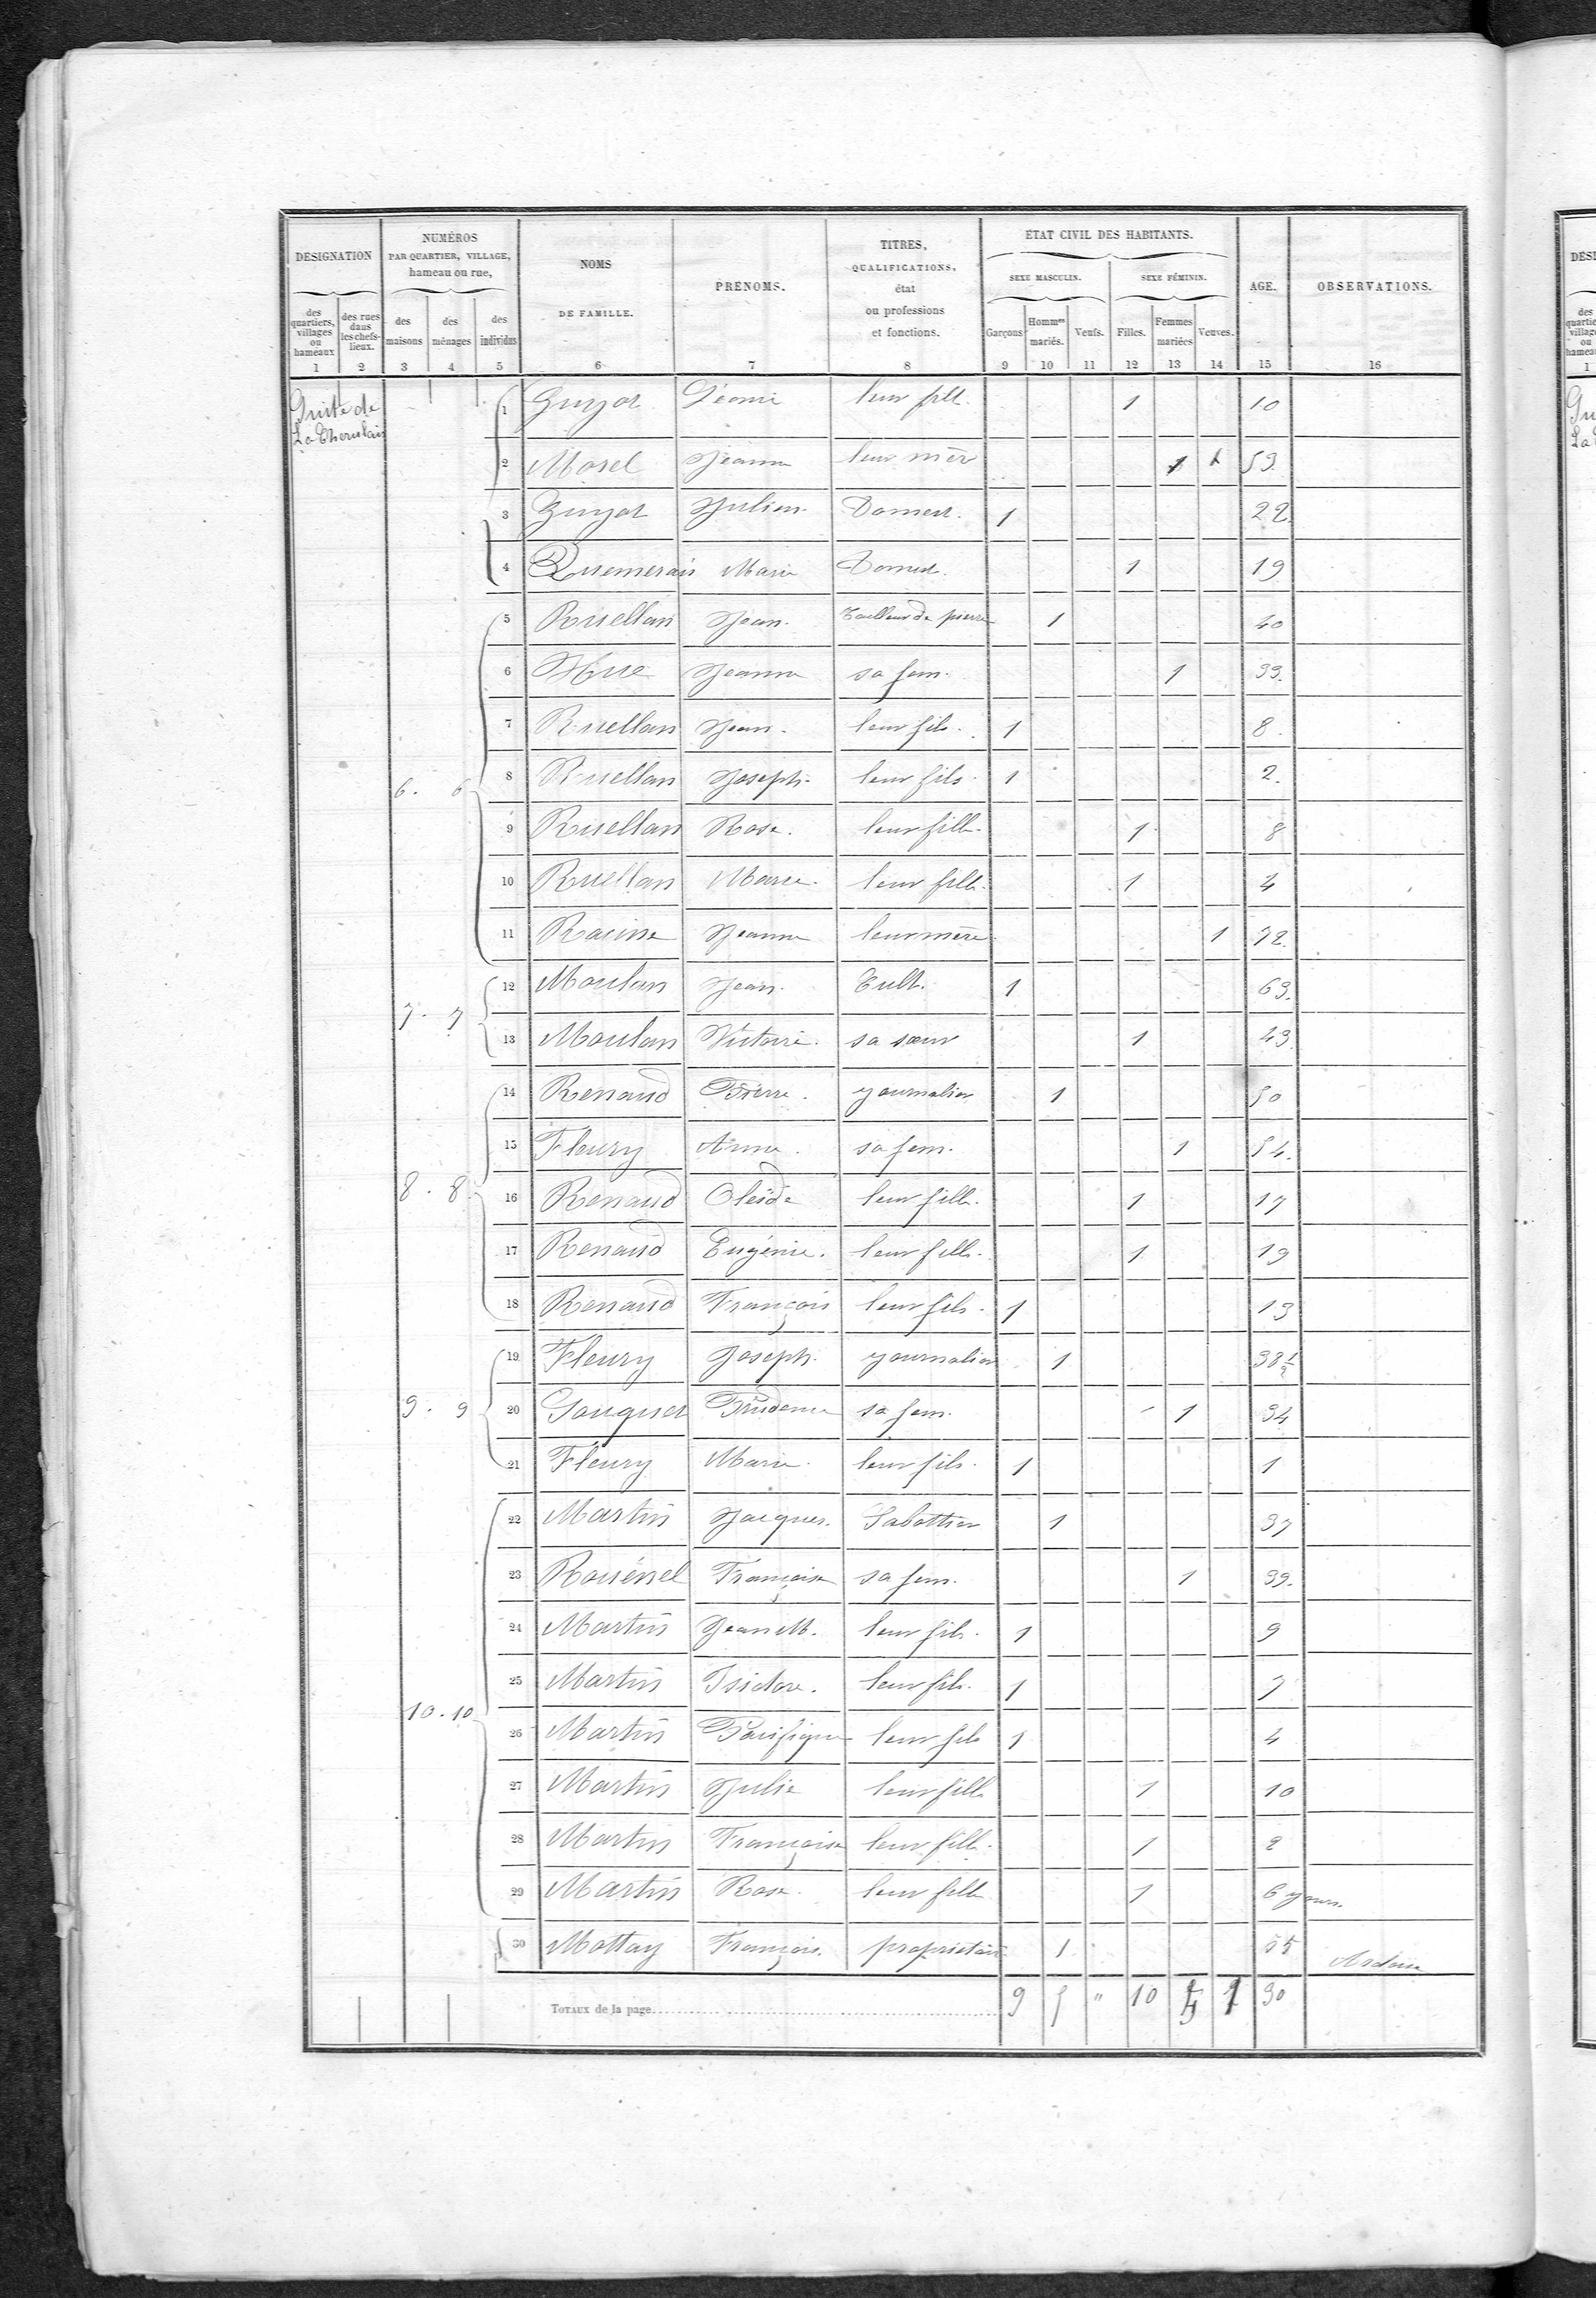 DÉSIGNATION
NUMÉROS PAR QUARTIER, VILLAGE, hameau ou rue,
NOMS DE FAMILLE.
PRÉNOMS.
TITRES, QUALIFICATIONS, état ou professions et fonctions.
ÉTAT CIVIL DES HABITANTS.
SEXE MASCULIN. SEXE FÉMININ.
AGE.
OBSERVATIONS.
des quartiers, villages ou hameaux
des rues dans les chefs-lieux.
des maisons
des ménages
des individus
Garçons Hommes mariés. Veufs. Filles. Femmes mariées Veuves.
1 2 3 4 5 6 7 8 9 10 11 12 13 14 15 16
Suite de
1 Guyot Léonie leur fille 1 10
2 Morel Jeanne leur mère 1 1 59.
3 Guyot Julien Domest. 1 22.
4 Quemerais Marie Domest. 1 19
5 Ruellan Jean. Tailleur de pierre 1 40
6 Hue Jeanne sa fem. 1 39.
7 Ruellan Jean. leur fils. 1 8.
6. 6 8 Ruellan Joseph. leur fils. 1 2.
9 Ruellan Rose. leur fille. 1 8
10 Ruellan Marie. leur fille. 1 4
11 Racine Jeanne leur mère 1 72.
12 Moulan Jean. Cult. 1 63.
7. 7 13 Moulan Victoire. sa sœur 1 43
14 Renaud Pierre. journalier 1 50
15 Fleury Anne. sa fem. 1 54.
8. 8 16 Renaud leur fille. 1 17
17 Renaud Eugénie. leur fille. 1 19
18 Renaud François leur fils. 1 13
19 Fleury Joseph. journalier 1 38
9. 9 20 Gouguet Prudence sa fem. 1 34
21 Fleury Marie. leur fils. 1 1
22 Martin Jacques. Sabottier 1 37
23 Rouënel Françoise sa fem. 1 39.
24 Martin Jean M. leur fils. 1 9
25 Martin Isidore. leur fils. 1 7
10. 10 26 Martin Pacifique leur fils 1 4
27 Martin Julie leur fille 1 10
28 Martin Françoise leur fille. 1 2
29 Martin Rose. leur fille 1 6 jours.
30 Mottay François. propriétaire 1 55
TOTAUX de la page 9 5 " 10 1 30